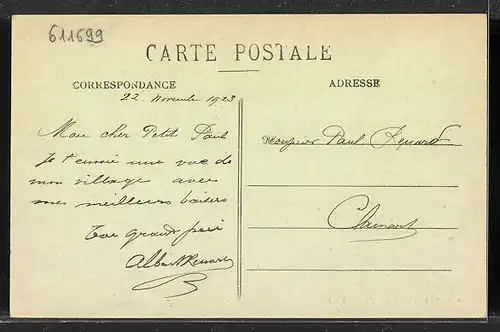 611699
CARTE POSTALE
CORRESPONDANCE
ADRESSE
22 Novembre 1923
Mon cher Petit Paul
Je t'envoie une vue de
mon village avec
mes meilleurs baisers
Ton grand père
Albert Renard
Monsieur Paul Renard
Clamart